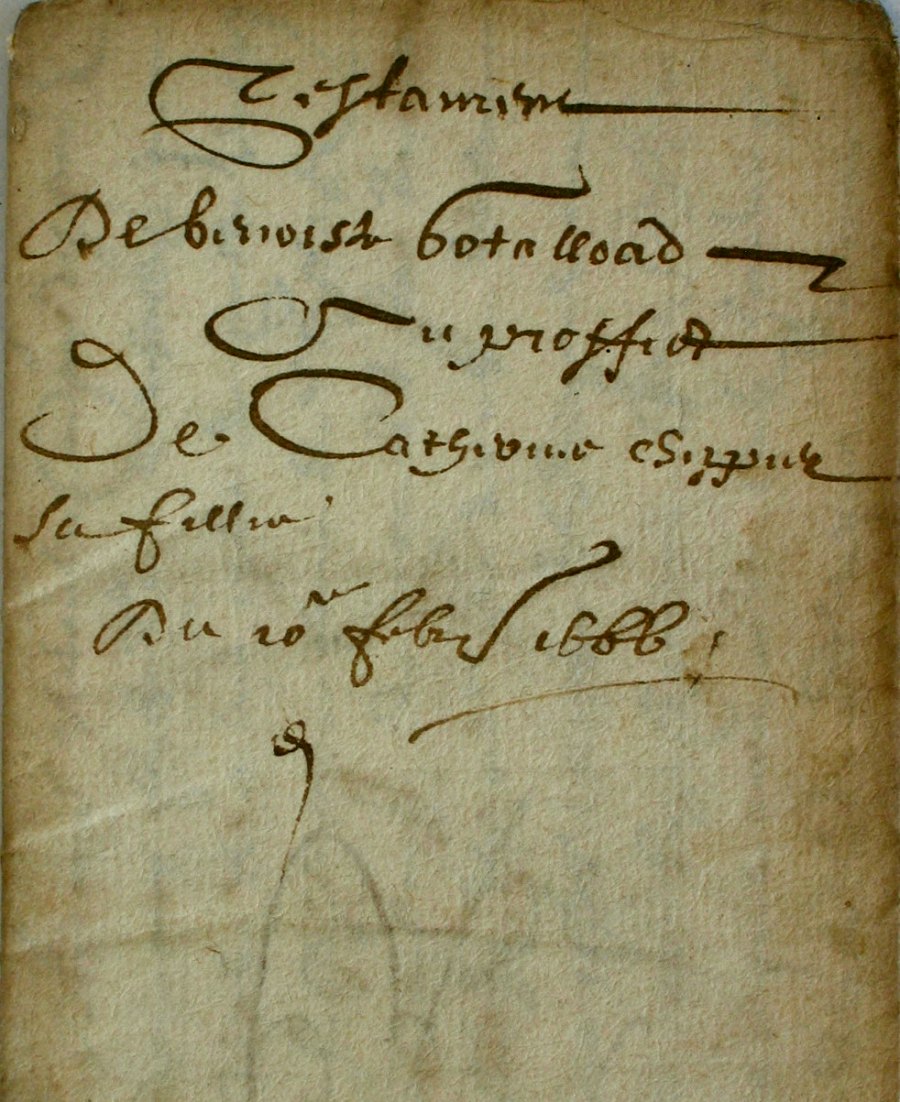 Testament
De benoiste botalload
Au proffict
De Catherine
Sa fillie
Du 10me febvr 1666